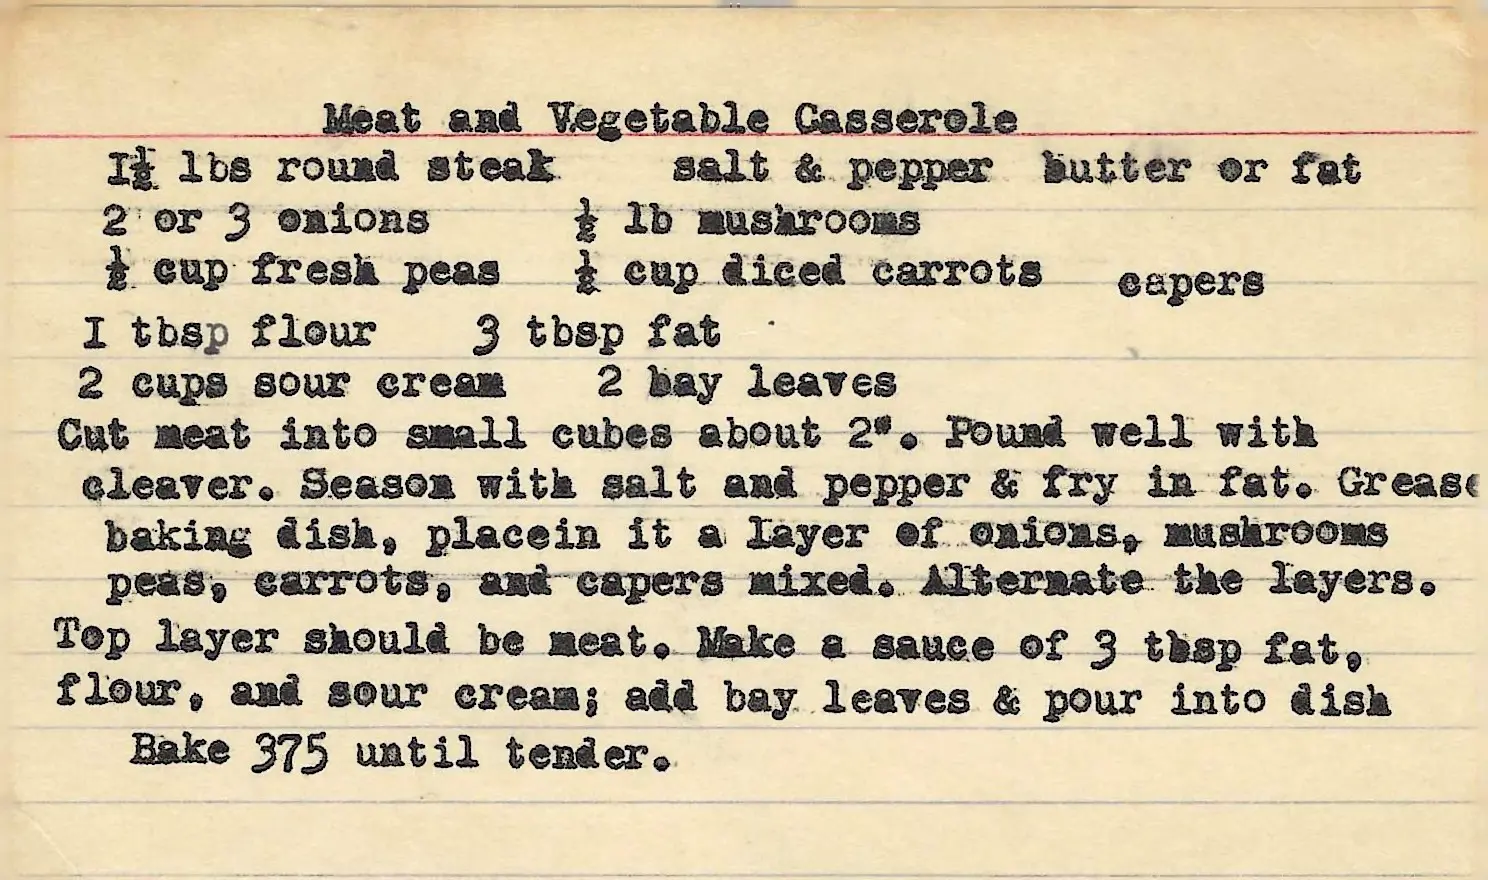 Meat and Vegetable Casserole
1½ lbs round steak salt & pepper butter or fat
2 or 3 onions ½ lb mushrooms
½ cup fresh peas ½ cup diced carrots capers
I tbsp flour 3 tbsp fat
2 cups sour cream 2 bay leaves
Cut meat into small cubes about 2". Pound well with
cleaver. Season with salt and pepper & fry in fat. Grease
baking dish, placein it a layer of onions, mushrooms
peas, carrots, and capers mixed. Alternate the layers.
Top layer should be meat. Make a sauce of 3 tbsp fat,
flour, and sour cream; add bay leaves & pour into dish
Bake 375 until tender.